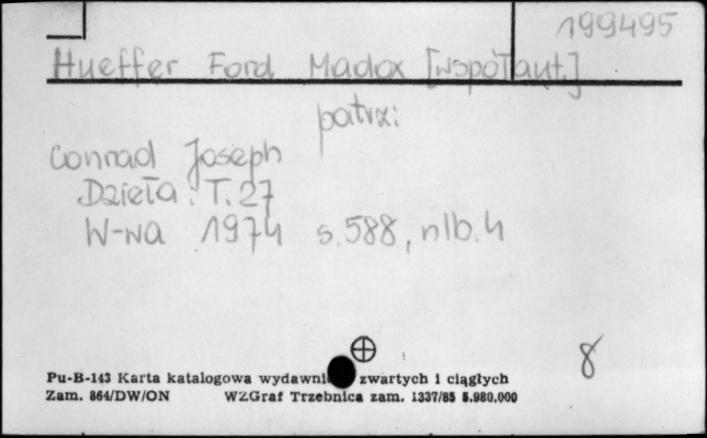 199495
Hueffer Ford Madox [współaut.]
patrz:
Conrad Joseph
Dzieła. T. 27
W-wa 1974 s. 588, nlb. 4
8
Pu-B-143 Karta katalogowa zwartych i ciągłych
Zam. 864/DW/ON WZGraf Trzebnica zam. 1337/85 5.980.000